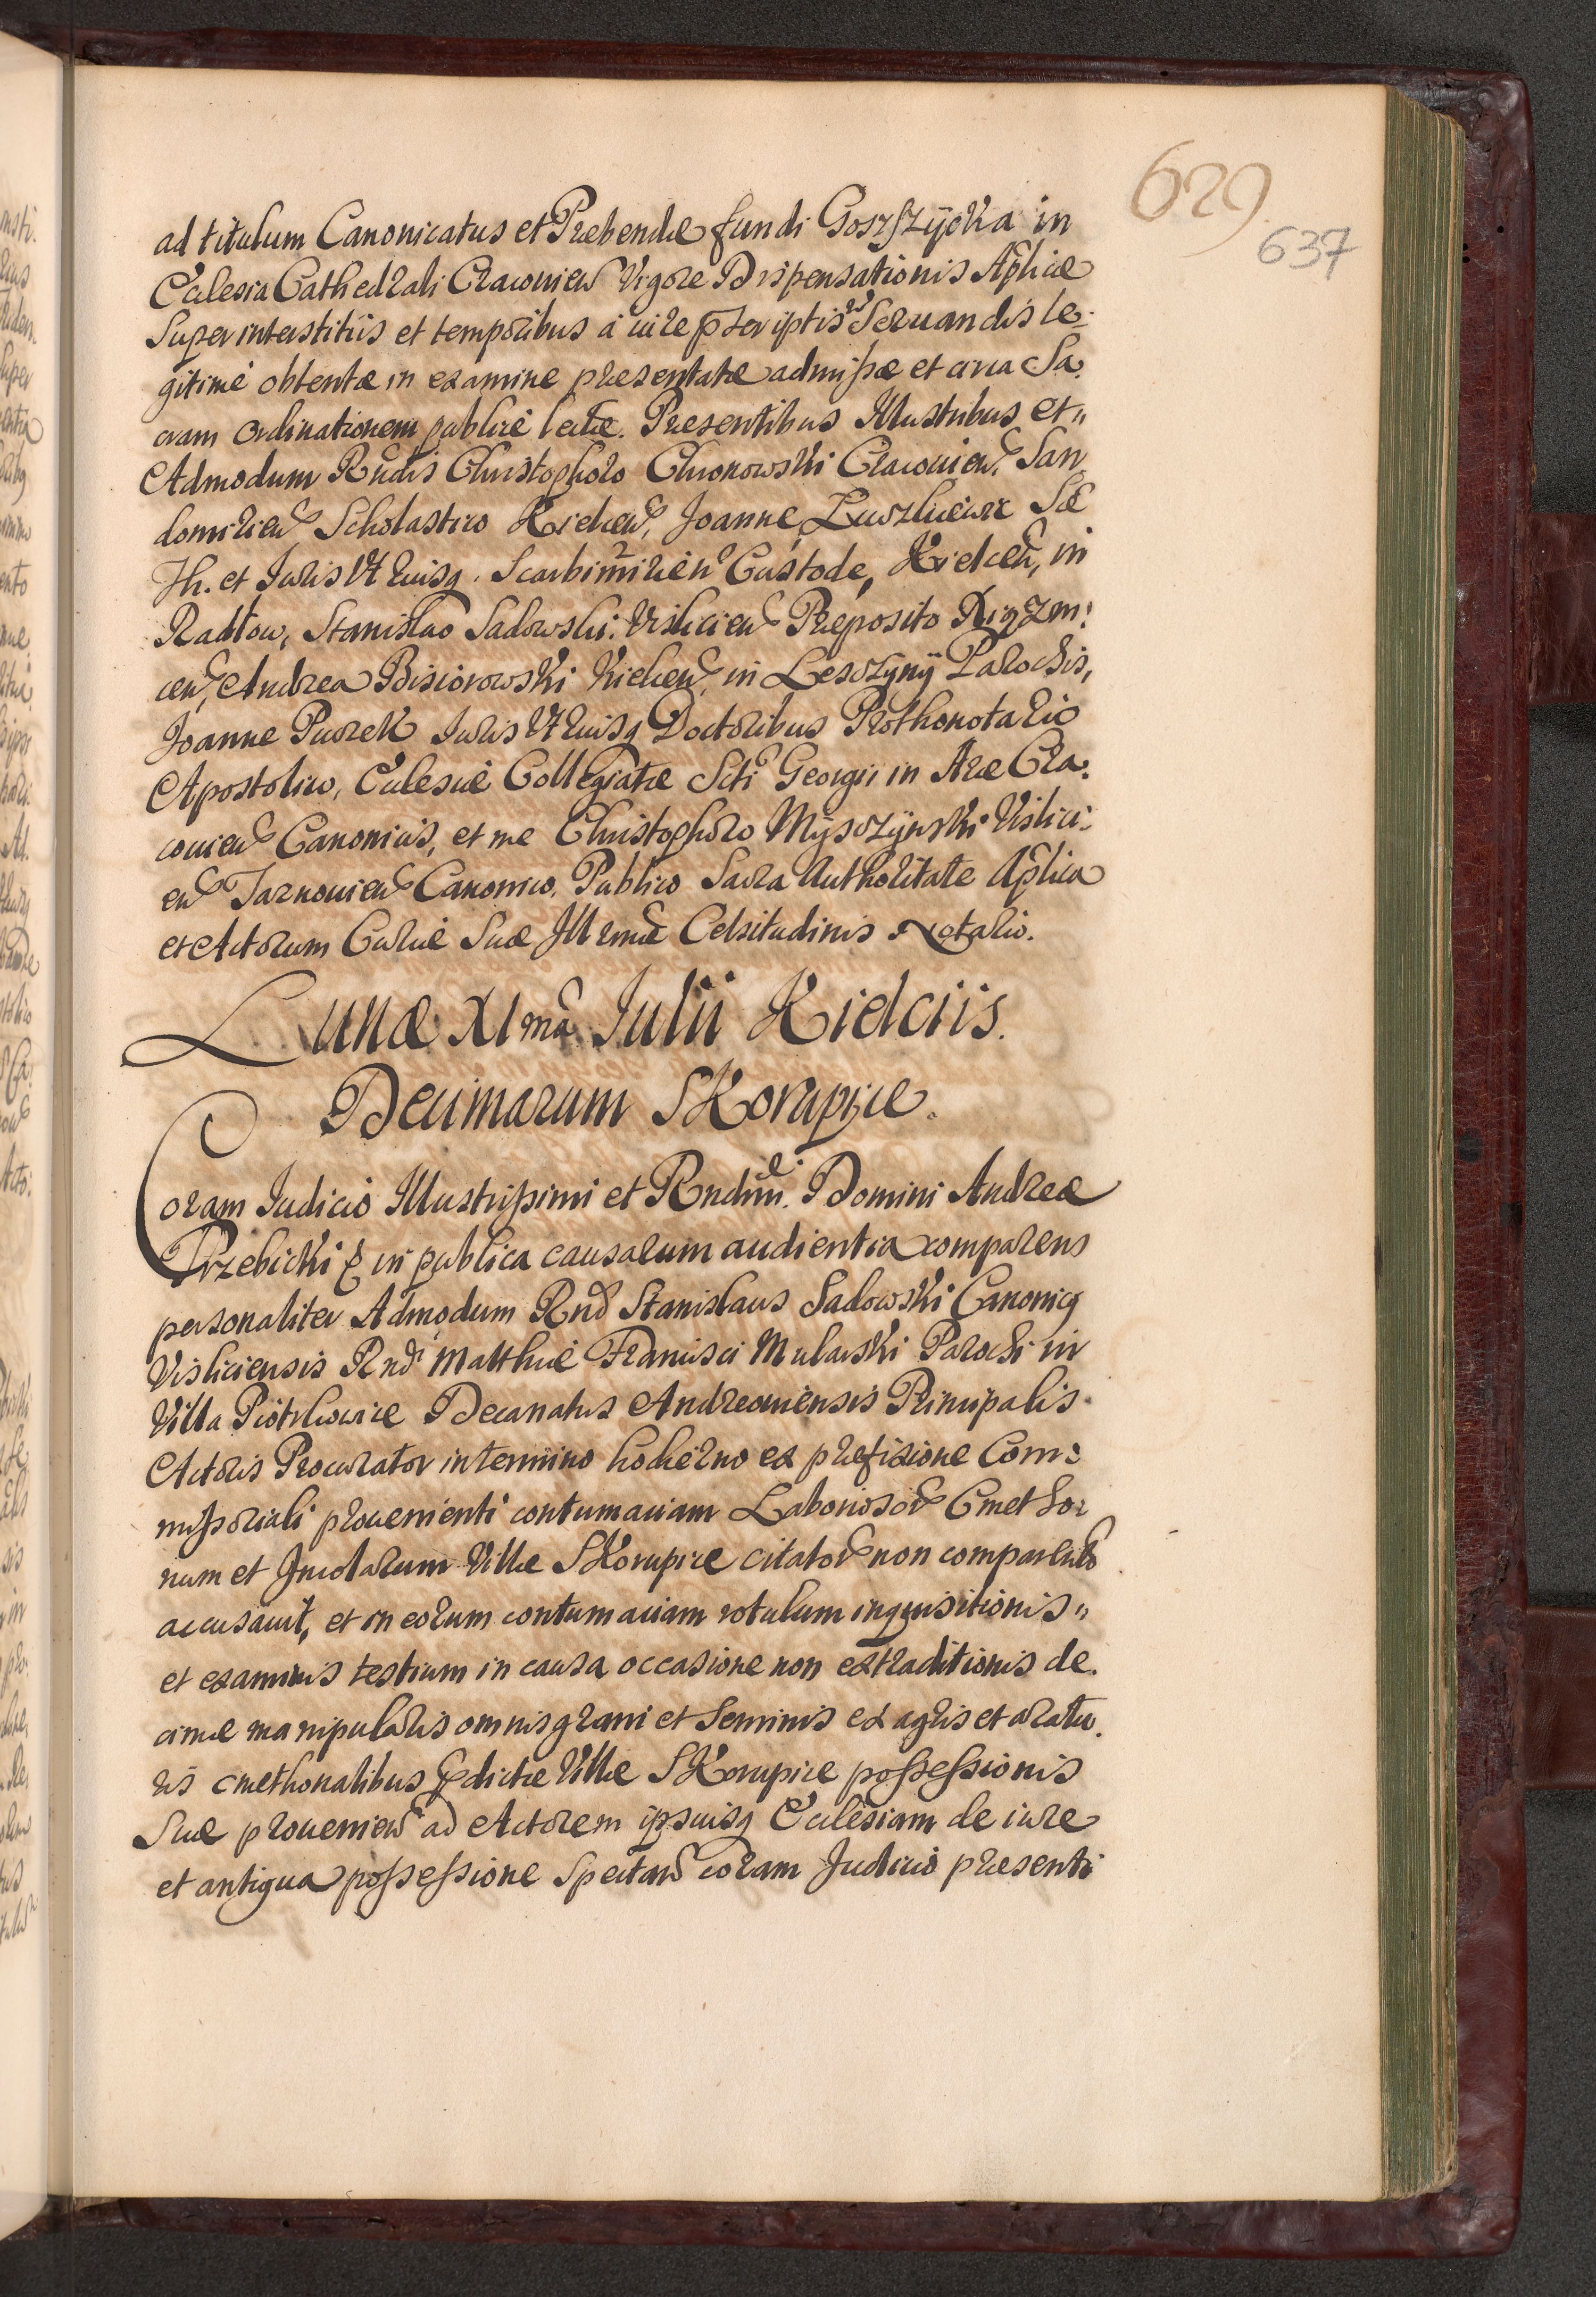 629.
637
ad titulum Canonicatus et Præbendæ fundi Goszszÿcka in
Ecclesia Cathedrali Cracouien Vigore Dispensationis Aplicæ
Super interstitiis et temporibus á iure pscriptis Seruandis le-
gitimé obtentæ in examine præsentatæ admißæ et circa Sa-
cram Ordinationem publicé lectæ. Præsentibus Illustribus et
Admodum Rndis Christophoro Chronowski Cracouien, San
domirien Scholastico Kielcen, Joanne Sæ
Th. et Iuris Vtriusq. Scarbimirien Custode, Kielcen, in
Radłow, Stanislao Sadowski Visliciens Præposito
cen, Andrea Bisiorowski Kielcen, in Leszczÿnÿ Parochis,
Joanne Purek Iuris Vtriusq Doctoribus Prothonotario
Apostolico, Ecclesiæ Collegiatæ Scti Georgii in Arce Cra-
couien Canonicis, et me Christophoro Mÿszczÿnski Vislici-
en Tarnouien Canonico, Publico Sacra Authoritate Aplica
et Actorum Curiæ Suæ Illrmæ Celsitudinis Notario.
Lunæ XI ma Iulii Kielciis.
Decimarum Skorupice.
Coram Iudicio Illustrißimi et Rndmi. Domini Andreæ
Trzebicki & in publica causarum audientia comparens
personaliter Admodum Rnd Stanislaus Sadowski Canonicq
Visliciensis Rndi Matthiæ Francisci Mularski Parochi in
Villa Piotrkowice Decanatus Andreouiensis Principalis
Actoris Procurator in termino hodierno ex præfixione Com-
mißoriali proueniénti contumaciam Laborioso Cmetho-
num et Incolarum Villæ Skorupice citator non comparen
accusauit, et in eorum contumaciam rotulum inquisitionis
et examinis testium in causa occasione non extraditionis de-
cimæ manipularis omnis grani et Seminis ex agris et aratu-
ris cmethonalibus pdictæ Villæ Skorupice poßeßionis
Suæ prouenien ad Actorem ipsiusq Ecclesiam de iure
et antiqua poßeßione Spectan coram Iudicio præsenti